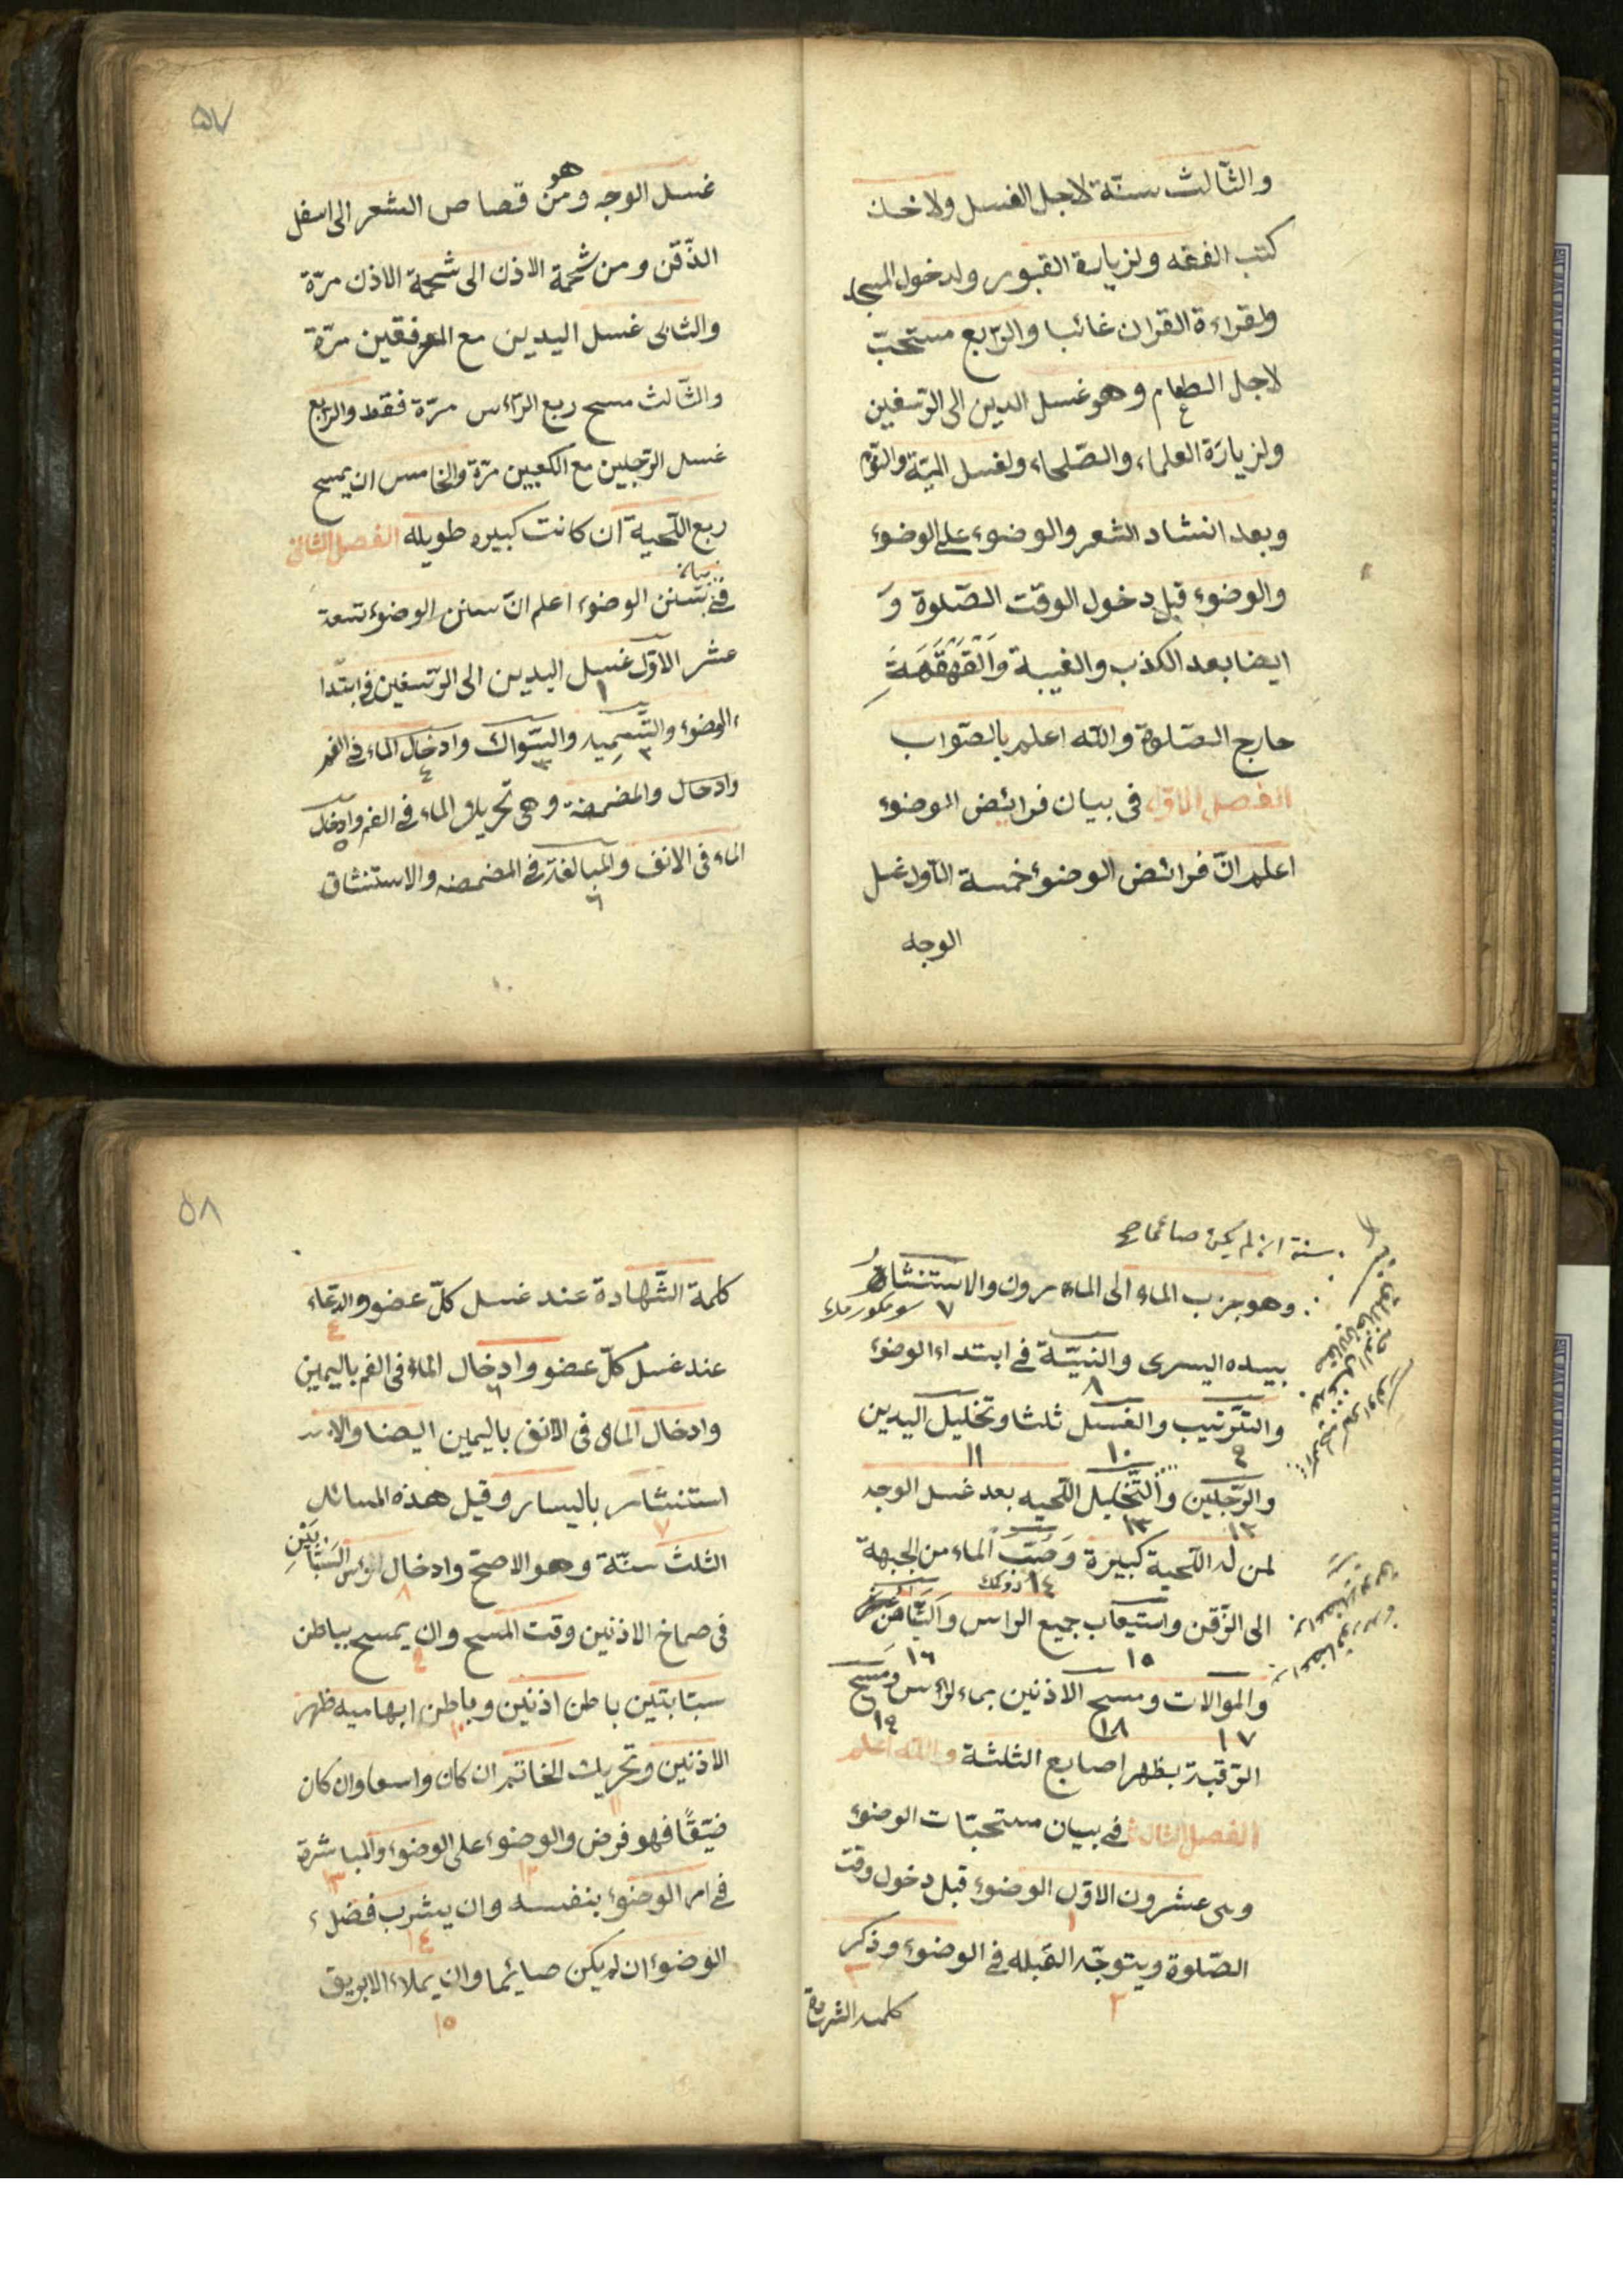 والثالث سنّة لاجل الغسل ولاخذ
كتب الفقه ولزيارة القبور ولدخول المسجد
ولقراءة القران غائبا والرّابع مستحبّ
لاجل الطعام وهو غسل اليدين الى الرّسغين
ولزيارة العلماء والصّلحاء ولغسل الميّة والنّوم
وبعد انشاد الشعر والوضوء على الوضوء
والوضوء قبل دخول الوقت الصّلوة وَ
ايضا بعد الكذب والغيبة وَالْقَهْقَهَةِ
خارج الصّلوة والله اعلم بالصّواب
الفصل الاوّل فى بيان فرائض الوضوء
اعلم انّ فرائض الوضوء خمسة الاوّل غسل
الوجه
۵۷
غسل الوجه وهو من قصاص الشعر الى اسفل
الذّقن ومن شحمة الاذن الى شحمة الاذن مرّة
والثانى غسل اليدين مع المرفقين مرّة
والثّالث مسح ربع الرّأس مرّة فقط والرّابع
غسل الرّجلين مع الكعبين مرّة والخامس ان يمسح
ربع اللّحية ان كانت كبيره طويله الفصل الثانى
فى بيان سنن الوضوء اعلم انّ سنن الوضوء تسعة
عشر الاوّل غسل اليدين الى الرّسغين فى ابتدا
١
ء الوضوء والتّسمية والسّواك وادخال الماء فى الفم
٢ ٣ ٤
وادخال والمضمضة وهى تحريك الماء فى الفم وادخال
٥
الماء فى الانف والمبالغة فى المضمضه والاستنشاق
٦
سنة ان لم يكن صائما صح
وهو جزب الماء الى الماء مرون والاستنشار
٧
بيده اليسرى والنيّة فى ابتداء الوضوء
٨
والتّرتيب والغسل ثلثا وتخليل اليدين
٩ ١٠ ١١
والرّجلين والتّخليل اللّحيه بعد غسل الوجه
١٢ ١٣
لمن له اللّحية كبيرة وَصَبّ الماء من الجبهة
١٤
الى الزّقن واستيعاب جميع الراس وَالتَّيَامُن
١٥ ١٦
والموالات ومسح الاذنين بماء الرأس ومَسح
١٧ ١٨ ١٩
الرّقبة بظهر اصابع الثلثة والله اعلم
الفصل الثالث فى بيان مستحبّات الوضوء
وهى عشرون الاوّل الوضوء قبل دخول وقت
١
الصّلوة ويتوجّه القبله فى الوضوء وذكر
٢ ٣
كلمة الشهادة
۵۸
كلمة الشّهادة عند غسل كلّ عضو والدّعاء
٤
عند غسل كلّ عضو وادخال الماء فى الفم باليمين
٦
وادخال الماء فى الانف باليمين ايضا والا
استنشار باليسار وقيل هذه المسائل
٧
الثلث سنّة وهو الاصحّ وادخال السَّبَّابَتَيْنِ
٨
فى صماخ الاذنين وقت المسح وان يمسح بباطن
٩
سبّابتين باطن اذنين وباطن ابهاميه ظهر
١٠
الاذنين وتحريك الخاتم ان كان واسعا وان كان
١١
ضيّقًا فهو فرض والوضوء على الوضوء والمباشرة
١٢ ١٣
فى امر الوضوء بنفسه وان يشرب فضل ء
١٤
الوضوء ان لم يكن صائما وان يملاء الابريق
١٥